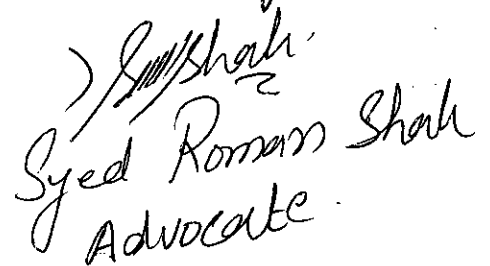 Syed Roman Shah
Advocate.